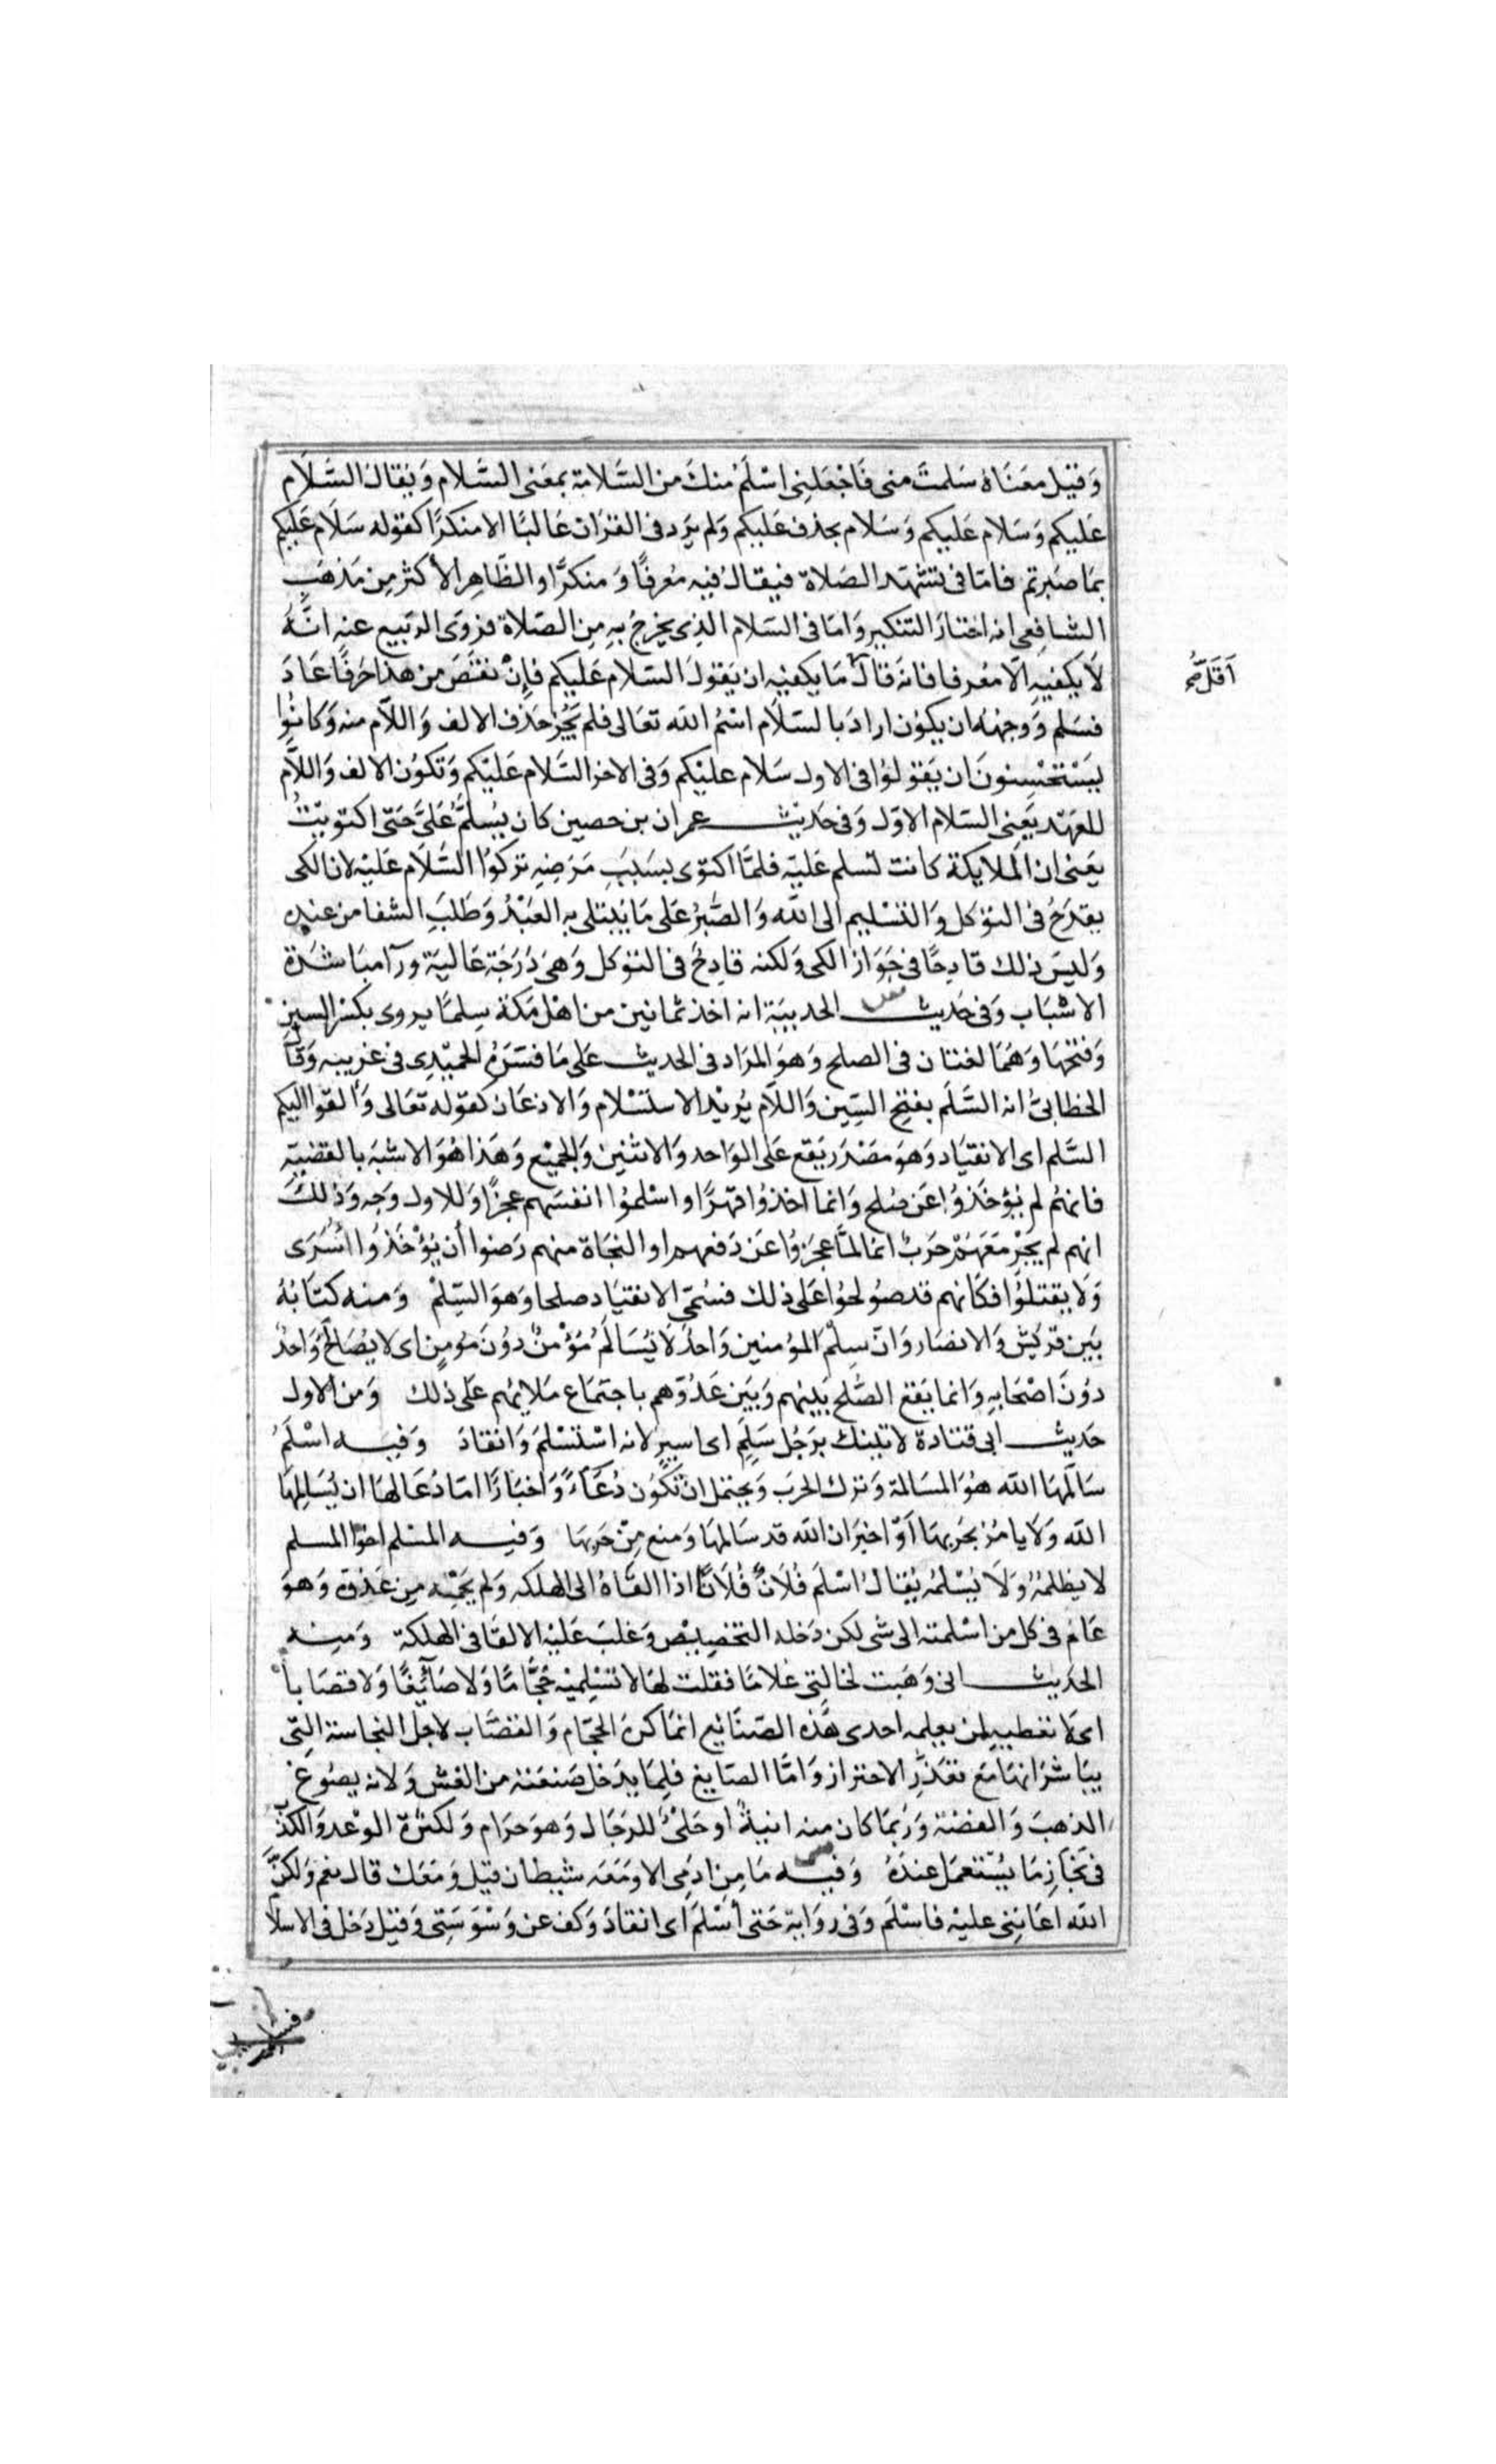 وَقيل مَعنَاهُ سَلمتَ منى فَاجْعَلنِى اسْلَمْ منكَ من السَّلامَة بمعَنى السَّلام وَيُقالُ السَّلَام
عَليكم وَسَلام عَليكم وَسَلام بحذف عَليكم وَلم يَرد فى القرَان غالبًا الا منكرًا كقوله سَلَام عَليكم
بمَا صَبرتم فامّا فى تشهّد الصَلاة فيقالُ فيه مُعرفًا وَ منكرًا والظَاهِر الأكثر مِن مَذهَبِ
الشافِعى انه اختارَ التنكير وَامّا فى السَلام الذِى يخرجُ به مِن الصَلاة فروَى الربيع عنه انَّهُ
لَا يكفيهِ الّا مُعرفا فانهَ قالَ مَا يكفيه ان يَقولَ السَلام عَليكم فإنْ نقَصَ من هذا حَرفًا عَادَ
اَقَلّ صح
فسَلم وَوجهُه ان يكوُن ارادَ بالسَلَام اسْمُ الله تعَالى فلم يَجُز حَذف الالف وَاللاّم منه وَكانُوا
يَسْتَحْسِنونَ ان يَقولوُا فى الاول سَلام عليْكم وَفى الاخر السَّلام عَليْكم وَتكوُن الالف وَاللاَّم
للعَهْد يَعنِى السَلام الاوّل وَفى حَديث عمران بن حصين كان يُسلَّمُ عَلىَّ حَتّى اكتويْتُ
يَعنى ان المَلايكة كانت تسلم عَليْه فلمّا اكتوى بسَبَبِ مَرَضِهِ تركوُا السَّلَام عَليْه لان الكى
يقدَحُ فى التوَكل وَ التسْليم الى الله وَالصَّبرُ عَلى مَا يُبتلى به العَبْدُ وَطَلبَ الشفا من عنده
وَليسَ ذلك قادِحًا فى جَوَاز الكى وَلكنه قادِحٌ فى التوَكل وَهىَ دَرَجَة عَاليَة ورآ مبَاشَرَة
الاسْبَاب وَفى حَديث الحديبيَة انه اخذ ثمانين من اهْل مَكة سِلمًا يروى بكسْر السين
وَفتحهَا وَهمَا لغتان فى الصلح وَهوَ المرَاد فى الحديث عَلى مَا فسَرَهُ الحميْدِى فى غريبه وَقالَ
الخطابىُّ انه السَّلَم بفتحِ السِّين وَاللاّم يُريْد الاستسْلام وَالاذعَان كقوله تَعَالى وَالقوا اليكم
السَّلم اى الانقيَاد وَهوَ مَصْدَر يَقع عَلى الوَاحد وَالاثنين وَالجميْع وَهَذا هُوَ الاشبَه بالقضيّة
فانهُم لم يُؤخَذوُا عَن صُلح وَانما اخذوُا قهرًا واسْلموُا انفسَهم عجزًا وَللاول وَجه وَذلكَ
انهم لم يَجْرِ مَعَهُمْ حَربٌ انمَا لمَّا عجَزوُا عَن دَفعهم او النجَاة منهم رَضوا أن يُؤخَذوُا اسْرَى
وَلَا يقتلوُا فكانهم قد صُولحوُا عَلى ذلك فسُمّى الانقيَاد صلحا وَهوَ السِّلمْ وَمنه كتَابُهُ
بَين قريْش وَالانصَار وَانّ سِلمَ المؤمنين وَاحدٌ لَا يُسَالَمُ مُؤمنٌ دُونَ مؤمنٍ اى لا يُصَالحُ وَاحدٌ
دوُنَ اصْحَابهِ وَانما يَقع الصُّلح بَينهم وَبَين عَدُوّهم باجتمَاع مَلائهم عَلى ذلك وَمن الاول
حَديث ابى قتادة لاتينك برَجُل سَلَمٍ اى اسيرٍ لانه اسْتَسْلمَ وَانقادَ وَفيه اسْلمُ
سَالَمهَا الله هُوَ المسَالمة وَترك الحرَب وَيحتمل ان تكوُن دُعَاءً وَاخبَارًا امّا دُعَا لهَا ان يُسَالِمهَا
الله وَلا يامُرُ بحَربهَا اَوْ اخبَر ان الله قد سَالمهَا وَمنع مِنْ حَربهَا وَفيه المسْلم اخوُا المسلم
لا يظلمُهُ وَلَا يُسْلمُه يُقالُ اسْلمَ فُلَانٌ فُلَانًا اذا القاهُ الى الهلكه وَلم يَحْمِه مِن عَدُوّه وَهوَ
عَام فى كل من اسْلمته الى شى لكن دَخله التخصِيْص وَغلبَ عَليْه الالقا فى الهلكة وَمِنه
الحَديث انى وَهَبت لخالتى غلامًا فقلت لهَا لا تسْلِميْه حَجّامًا وَلا صَآئِغًا وَلا قصّاباً
اى لا تعطيه لمن يعلمه احدى هَذه الصّنَائع انمَا كره الحَجّام وَالقصَّاب لاجل النجاسة التِى
يبَاشرَانهَا مَعَ تعَذّرِ الاحتراز وَامَّا الصَايغ فلِمَا يدخل صَنعَته من الغش وَلانه يصُوغ
الذهبَ وَالفضة وَرُبمَا كان منه انيةٌ اوحَلْىٌ للرجَال وَهوَ حَرَام وَلكثرة الوْعد وَالكذب
فى نجَازِ مَا يُسْتعمَل عندَهُ وَفيه مَا مِن ادَمِى الا وَمَعَه شيطان قيل وَمَعَك قال نعَم وَلكنَّ
الله اعَاننِى عليْه فاسْلَم وَفى روَاية حَتى أسْلَمَ اى انقادَ وَكف عن وَسْوَسَتِى وَقيل دَخل فى الاسلا